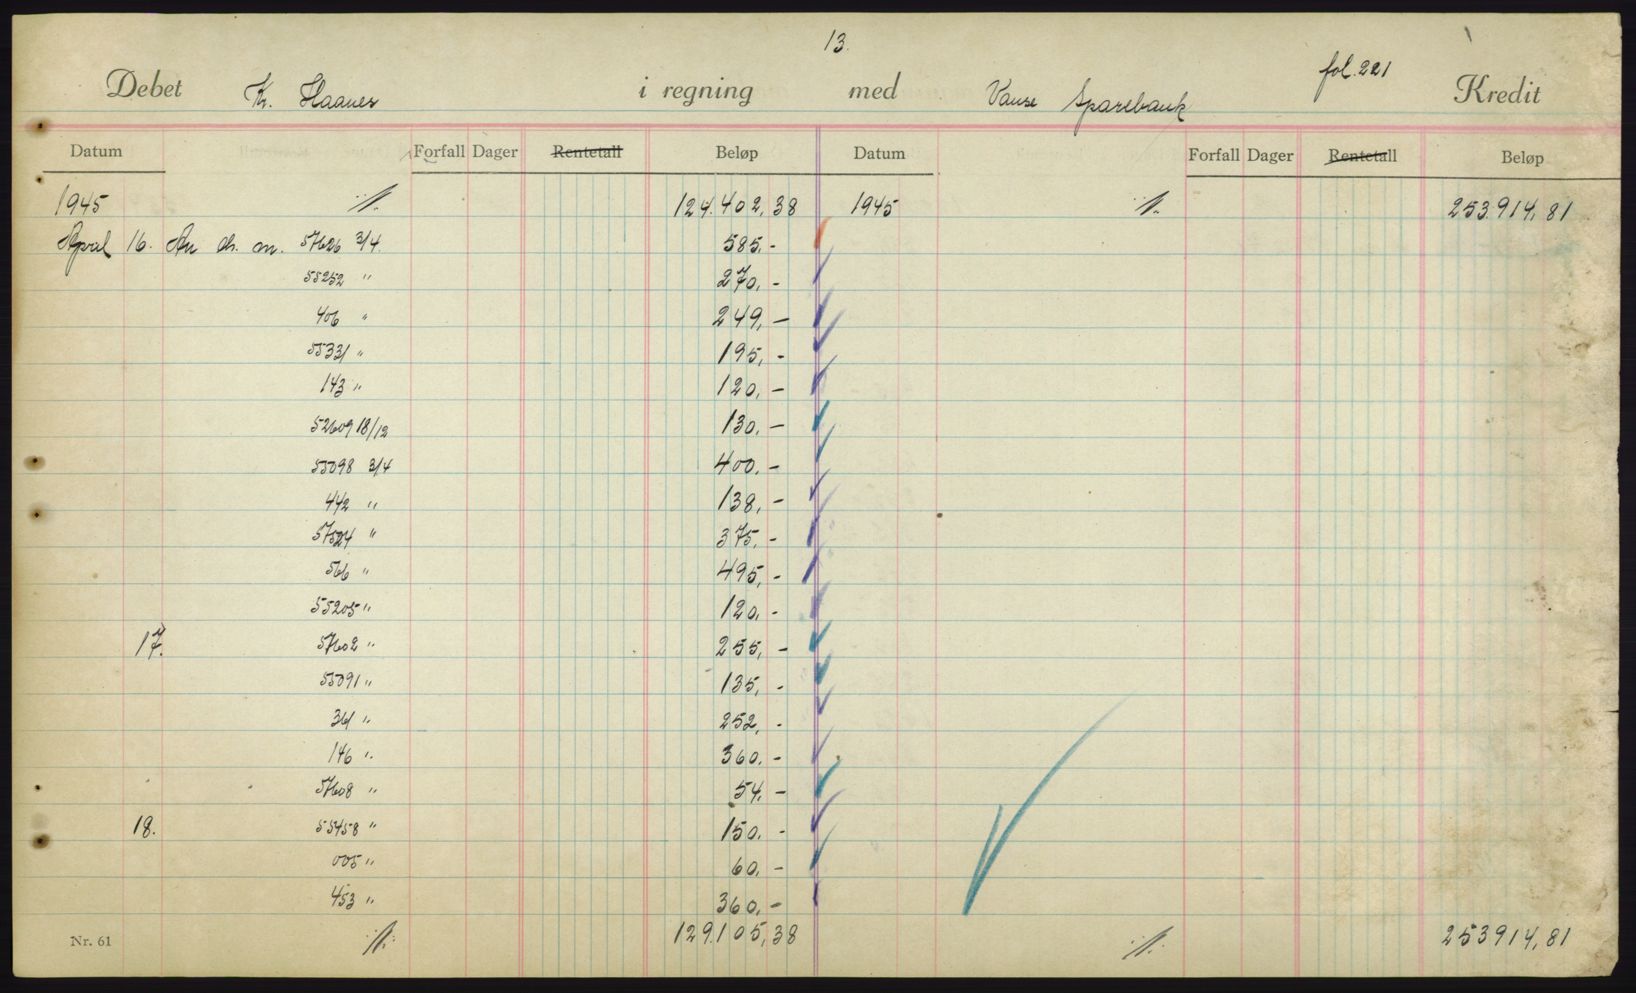 13.
fol. 221
Debet Kr. Haanes i regning med Vanse Sparebank Kredit
Datum Forfall Dager Rentetall Beløp Datum Forfall Dager Rentetall Beløp
1945 124.402,38 1945 253.914,81
April 16. An ch. m. 57626 3/4. 585.-
55252 " 270,-
406 " 249,-
55331 " 195,-
143 " 120,-
52609 18/12 130,-
55098 3/4 400,-
442 " 138,-
57524 " 375,-
566 " 495,-
55205 " 120,-
17. 57602 " 255,-
55091 " 135,-
361 " 252,-
146 " 360,-
57608 " 54,-
18. 55458 " 150,-
005 " 60,-
453 " 360,-
Nr. 61 129.105,38 253914,81